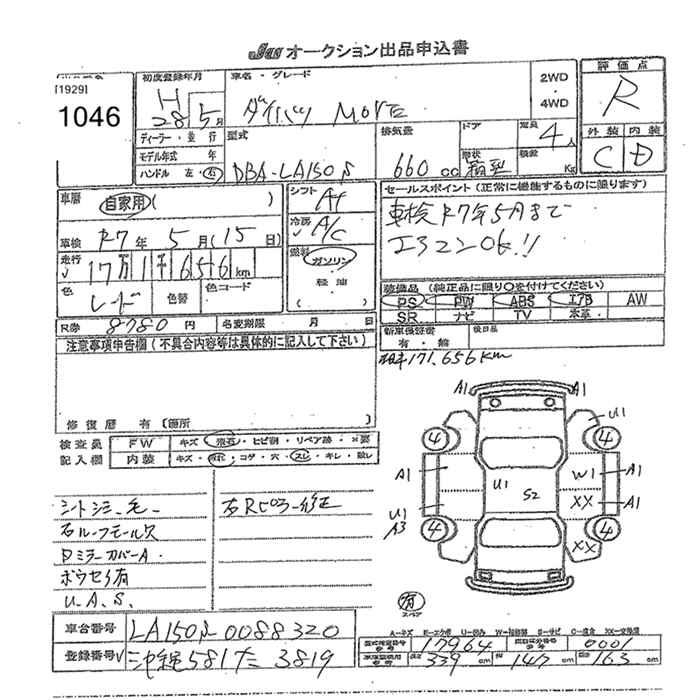 JAA オークション出品申込書
[1929]
1046
初度登録年月
H
28 5 月
車名・グレード
ダイハツ Move
2WD
・
4WD
評価点
R
外装 内装
C D
ディーラー・並行
モデル年式 年
ハンドル 左・右
型式
DBA-LA150S
排気量
660 cc
ドア
形状
箱型
定員
4人
積載
Kg
車歴
自家用 ( )
車検 R7 年 5 月 (15 日)
走行
17万1千656 km
色
レード
色替
色コード
シフト
At
冷房
A/C
燃料
ガソリン
軽油
セールスポイント (正常に機能するものに限ります)
車検R7年5月まで
エアコンOK!!
装備品 (純正品に限り○を付けてください)
PS PW ABS エアB AW
SR ナビ TV 本革
新車保証書
有・無
後日品
R券 8780 円 名変期限 月 日
171,656km
注意事項申告欄 (不具合内容等は具体的に記入して下さい)
修復歴 有 〔箇所
検査員
記入欄
FW キズ・飛石・ヒビ割・リペア跡・×要
内装 キズ・汚れ・コゲ・穴・スレ・キレ・欠し
シートシミ・毛-
右ルーフモール欠
Dミラーカバー A.
ボウセイ有
U.A.S.
右Rピラー修正
A1 A1
U1
4 4
A1
U1 S2
W1 A1
XX A1
U1
A3
4 4
XX
有
スペア
A-キズ E-エクボ U-凹み W-補修跡 S-サビ C-腐食 XX-交換済
車台番号 LA150S-0088320
登録番号 沖縄581た3819
型式指定番号 17964 類別区分番号 0001
339 cm 147 cm 163 cm